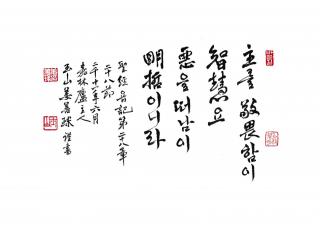 主를 敬畏함이
智慧요
惡을 떠남이
明哲이니라
聖經 욥記 第二十八章
二十八節
二千十六年 六月
嘉林廬主人
玉山 姜 謹書